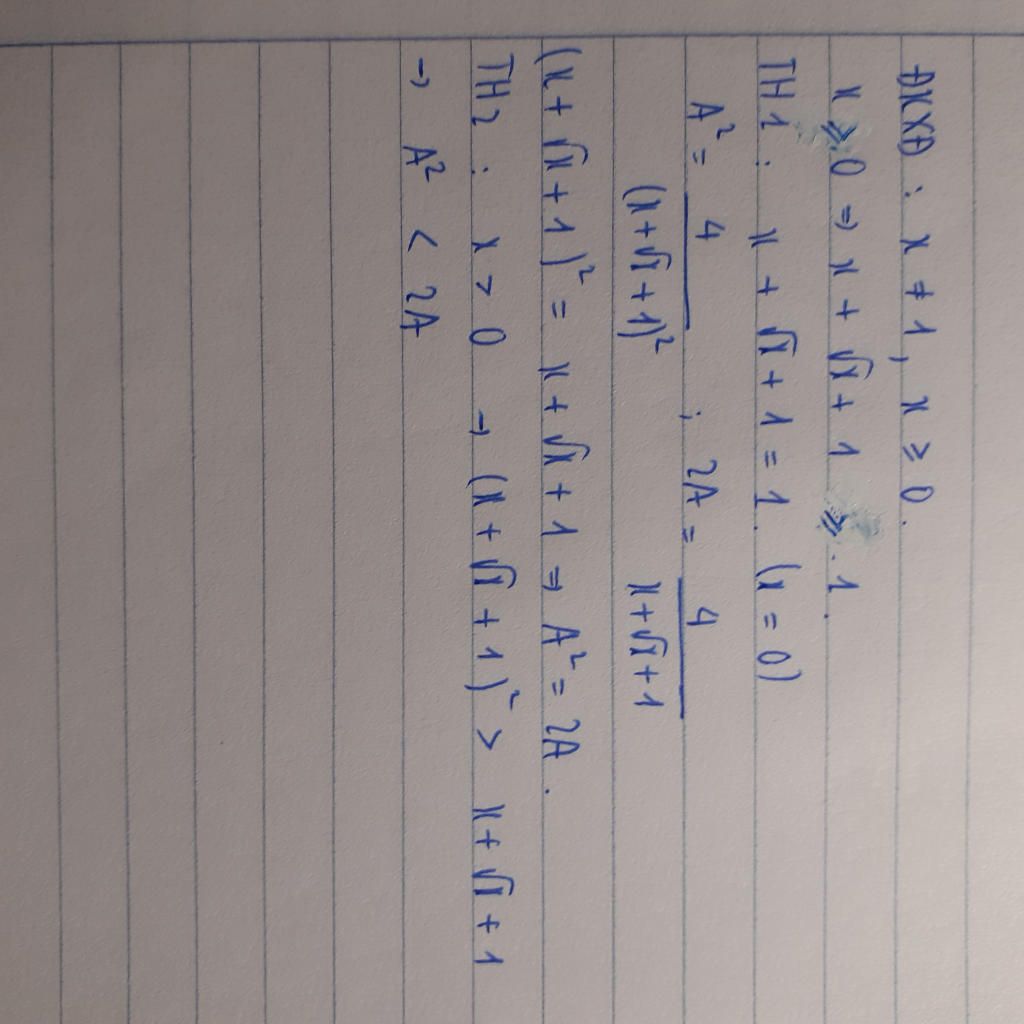 ĐKXĐ : x ≠ 1, x ≥ 0.
x ≥ 0 ⇒ x + √x + 1 ≥ 1.
TH1 : x + √x + 1 = 1. (x = 0)
A² = 4/(x+√x+1)² ; 2A = 4/(x+√x+1)
(x + √x + 1)² = x + √x + 1 ⇒ A² = 2A.
TH2 : x > 0 → (x + √x + 1)² > x + √x + 1
→ A² < 2A